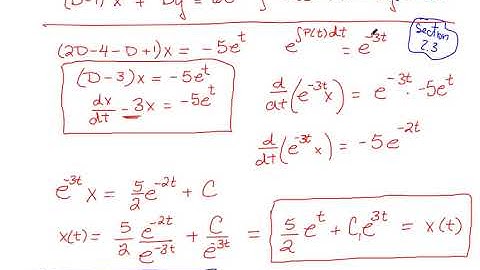 (2D-4-D+1)x = -5e^t
e^∫P(t)dt = e^-3t
Section 2.3
(D-3)x = -5e^t
dx/dt - 3x = -5e^t
d/dt(e^-3t x) = e^-3t · -5e^t
d/dt(e^-3t x) = -5e^-2t
e^-3t x = 5/2 e^-2t + C
x(t) = 5/2 e^-2t/e^-3t + C/e^3t = 5/2 e^t + C₁e^3t = x(t)